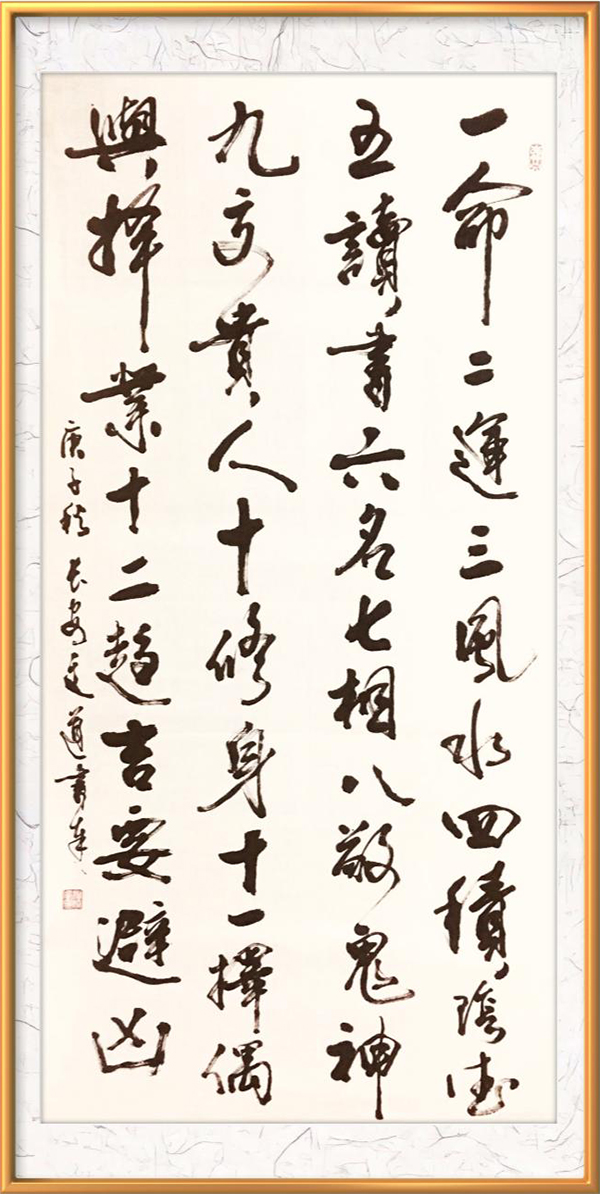 一命二運三風水四積陰德
五讀書六名七相八敬鬼神
九交貴人十修身十一擇偶
與择業十二趨吉要避凶
庚子秋 長安道書